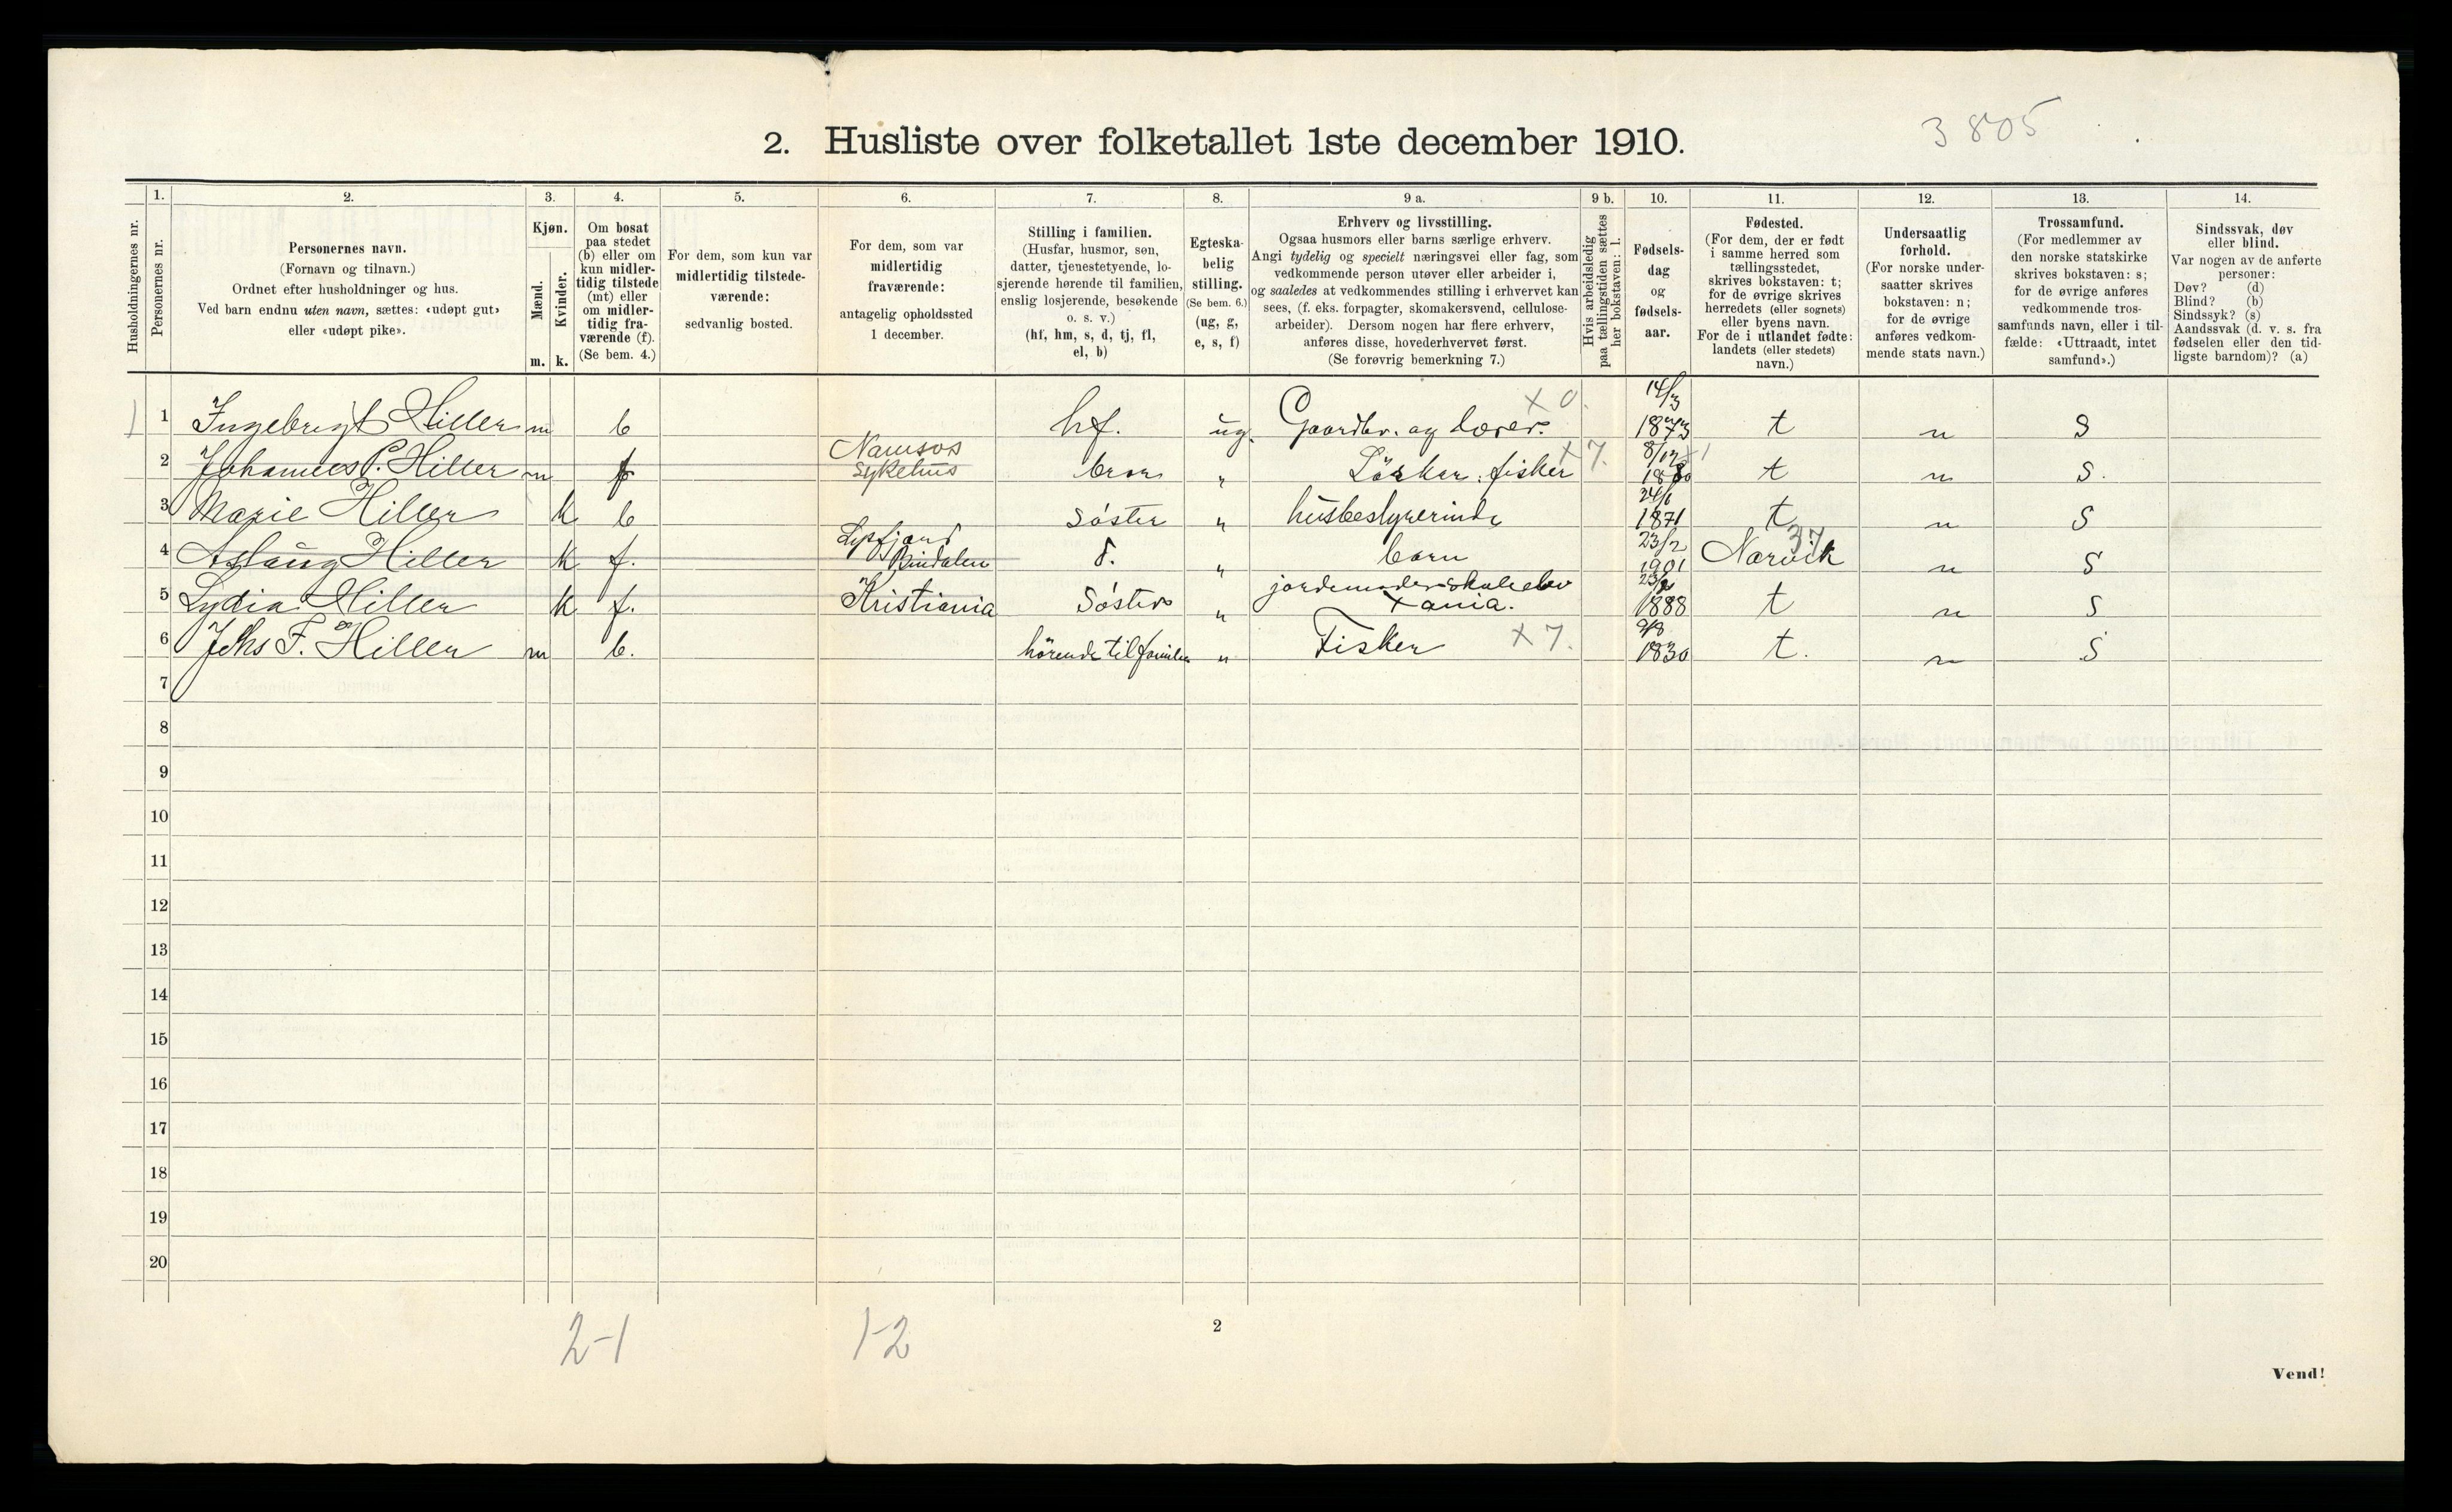 3 805
2. Husliste over folketallet 1ste december 1910.
1. 2. 3. 4. 5. 6. 7. 8. 9 a. 9 b. 10. 11. 12. 13. 14.
Husholdningernes nr.
Personernes nr.
Personernes navn.
(Fornavn og tilnavn.)
Ordnet efter husholdninger og hus.
Ved barn endnu uten navn, sættes: «udøpt gut»
eller «udøpt pike».
Kjøn.
Mænd.
Kvinder.
m. k.
Om bosat
paa stedet
(b) eller om
kun midler-
tidig tilstede
(mt) eller
om midler-
tidig fra-
værende (f).
(Se bem. 4.)
For dem, som kun var
midlertidig tilstede-
værende:
sedvanlig bosted.
For dem, som var
midlertidig
fraværende:
antagelig opholdssted
1 december.
Stilling i familien.
(Husfar, husmor, søn,
datter, tjenestetyende, lo-
sjerende hørende til familien,
enslig losjerende, besøkende
o. s. v.)
(hf, hm, s, d, tj, fl,
el, b)
Egteska-
belig
stilling.
(Se bem. 6.)
(ug, g,
e, s, f)
Erhverv og livsstilling.
Ogsaa husmors eller barns særlige erhverv.
Angi tydelig og specielt næringsvei eller fag, som
vedkommende person utøver eller arbeider i,
og saaledes at vedkommendes stilling i erhvervet kan
sees, (f. eks. forpagter, skomakersvend, cellulose-
arbeider). Dersom nogen har flere erhverv,
anføres disse, hovederhvervet først.
(Se forøvrig bemerkning 7.)
Hvis arbeidsledig
paa tællingstiden sættes
her bokstaven: l.
Fødsels-
dag
og
fødsels-
aar.
Fødested.
(For dem, der er født
i samme herred som
tællingsstedet,
skrives bokstaven: t;
for de øvrige skrives
herredets (eller sognets)
eller byens navn.
For de i utlandet fødte:
landets (eller stedets)
navn.)
Undersaatlig
forhold.
(For norske under-
saatter skrives
bokstaven: n;
for de øvrige
anføres vedkom-
mende stats navn.)
Trossamfund.
(For medlemmer av
den norske statskirke
skrives bokstaven: s;
for de øvrige anføres
vedkommende tros-
samfunds navn, eller i til-
fælde: «Uttraadt, intet
samfund».)
Sindssvak, døv
eller blind.
Var nogen av de anførte
personer:
Døv? (d)
Blind? (b)
Sindssyk? (s)
Aandssvak (d. v. s. fra
fødselen eller den tid-
ligste barndom)? (a)
1 Ingebrigt Hiller m b hf. ug. Gaardbr. og lærer. x 0. 14/3 1873 t n S
2 Johannes P. Hiller m f Namsos sykehus bror " fisker x 7. 8/12 t n S.
3 Marie Hiller k b Søster " husbestyrerinde 24/6 1871 t n S
4 Aslaug Hiller k f. Bindalen d. " barn 23/2 1901 Narvik 37 n S
5 Lydia Hiller k f. Kristiania Søster " jordemoderskoleelev Xania. 1888 t n S
6 Johs F. Hiller m b. hörende til familien " Fisker x 7. 9/8 1830 t. n S
7
8
9
10
11
12
13
14
15
16
17
18
19
20
2-1 1-2
2
Vend!